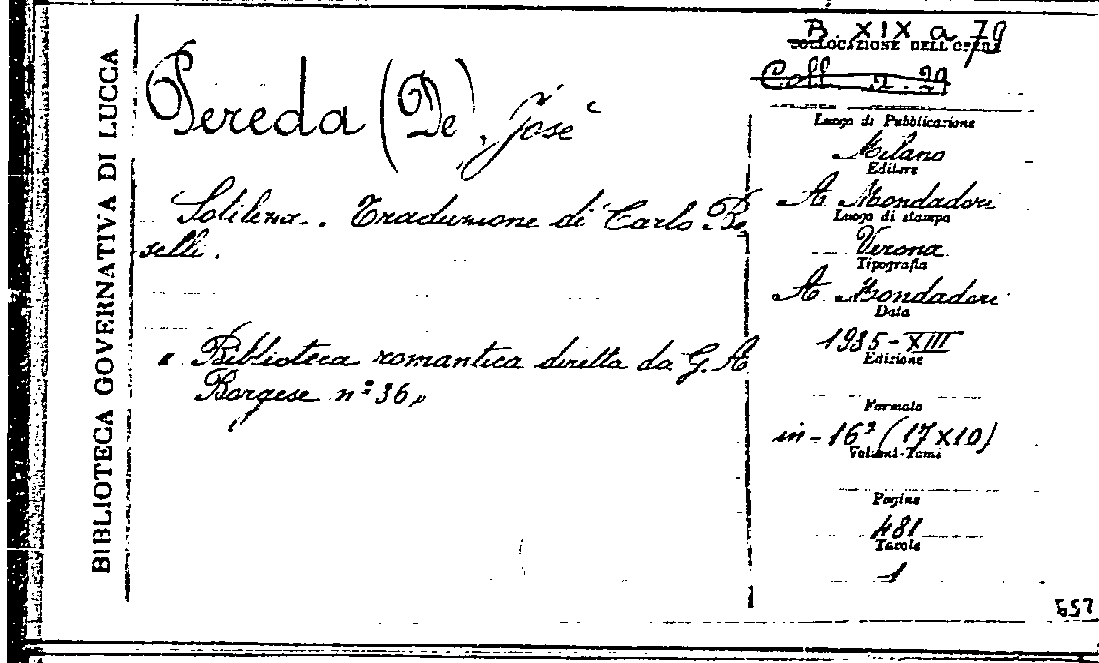 BIBLIOTECA GOVERNATIVA DI LUCCA
B. XIX a 79
COLLOCAZIONE DELL'OPERA
Coll. 2. 29
Pereda (De), José
Sotileza. Traduzione di Carlo Bo,
selli.
"Biblioteca romantica diretta da G. A.
Borgese n° 36"
Luogo di Pubblicazione
Milano
Editore
A. Mondadori
Luogo di stampa
Verona
Tipografia
A. Mondadori
Data
1935-XIII
Edizione
Formato
in-16° (17x10)
Volumi-Tomi
Pagine
481
Tavole
1